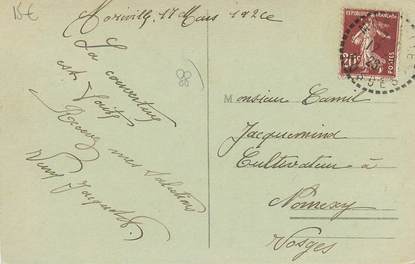 15€
Moriville, 17 Mars 1926
La couverture
est
Recevez mes Salutations
RÉPUBLIQUE FRANÇAISE
20c
POSTES
Monsieur Camil
Jacquemind
Cultivateur à
Nomexy
Vosges